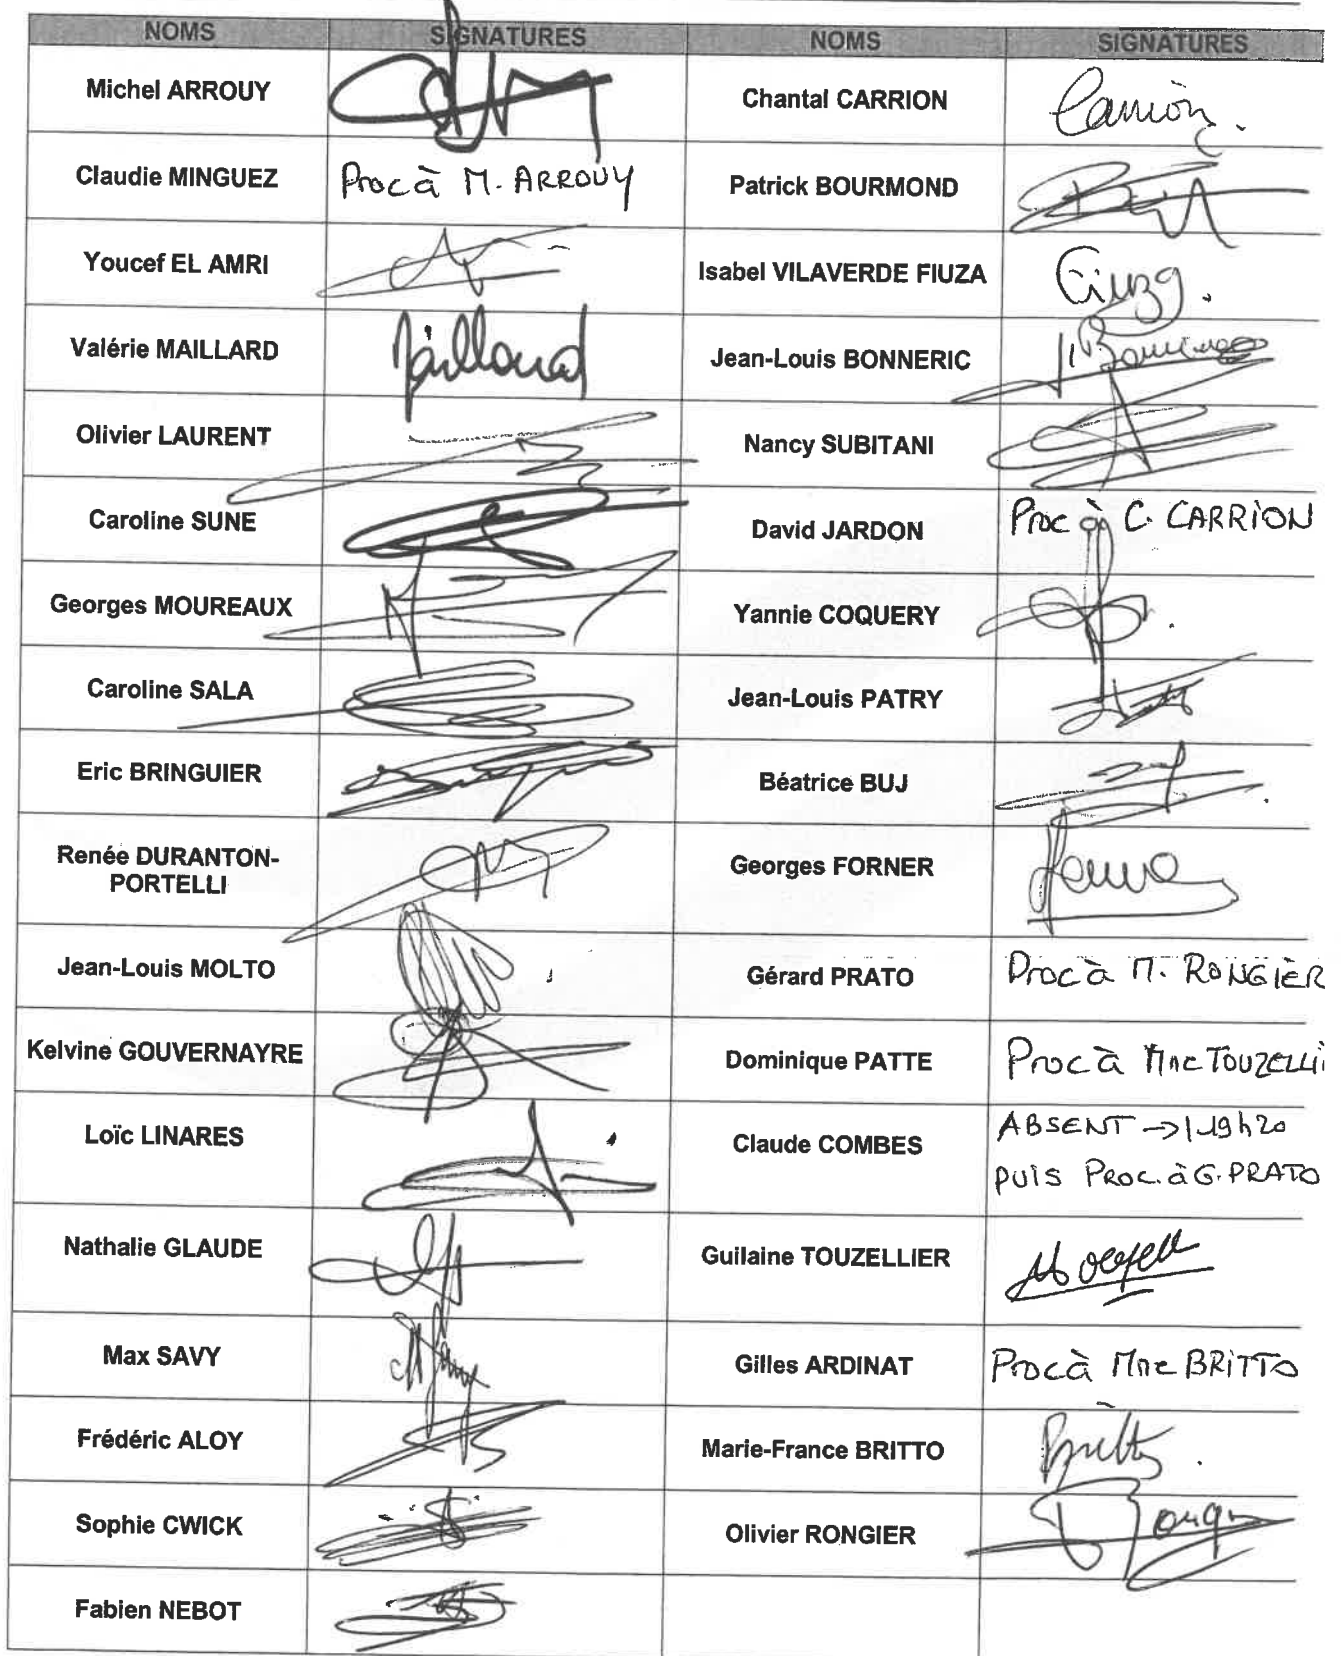 NOMS SIGNATURES NOMS SIGNATURES
Michel ARROUY Chantal CARRION Carrion.
Claudie MINGUEZ Proc à M. ARROUY Patrick BOURMOND
Youcef EL AMRI Isabel VILAVERDE FIUZA Fiuza.
Valérie MAILLARD Maillard Jean-Louis BONNERIC
Olivier LAURENT Nancy SUBITANI
Caroline SUNE David JARDON Proc à C. CARRION
Georges MOUREAUX Yannie COQUERY
Caroline SALA Jean-Louis PATRY
Eric BRINGUIER Béatrice BUJ
Renée DURANTON-
PORTELLI Georges FORNER
Jean-Louis MOLTO Gérard PRATO Proc à M. RONGIER
Kelvine GOUVERNAYRE Dominique PATTE Proc à Mme TOUZELLI
Loïc LINARES Claude COMBES ABSENT -> 19h20
PUIS PROC. à G. PRATO
Nathalie GLAUDE Guilaine TOUZELLIER
Max SAVY Gilles ARDINAT Proc à Mme BRITTO
Frédéric ALOY Marie-France BRITTO Britto
Sophie CWICK Olivier RONGIER
Fabien NEBOT